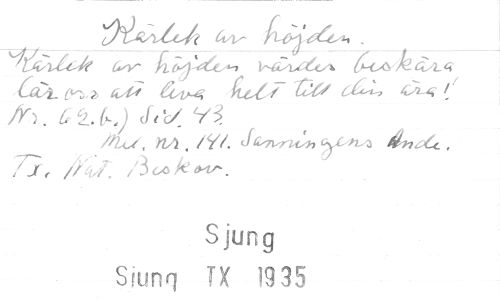 Kärlek av höjden.
Kärlek av höjden värdes beskära
lär oss att leva helt till din ära!
Nr. 62.b.) Sid. 43.
Mel. nr. 141. Sanningens Ande.
Tx. Nat. Beskow.
Sjung
Sjung TX 1935